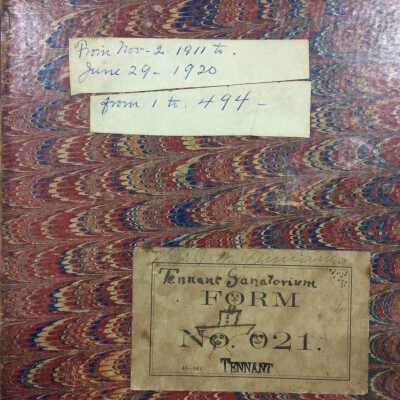 From Nov-2 1911 to.
June 29 - 1920
from 1 to. 494 -
Tennant Sanatorium
FORM
No. 021.
TENNANT